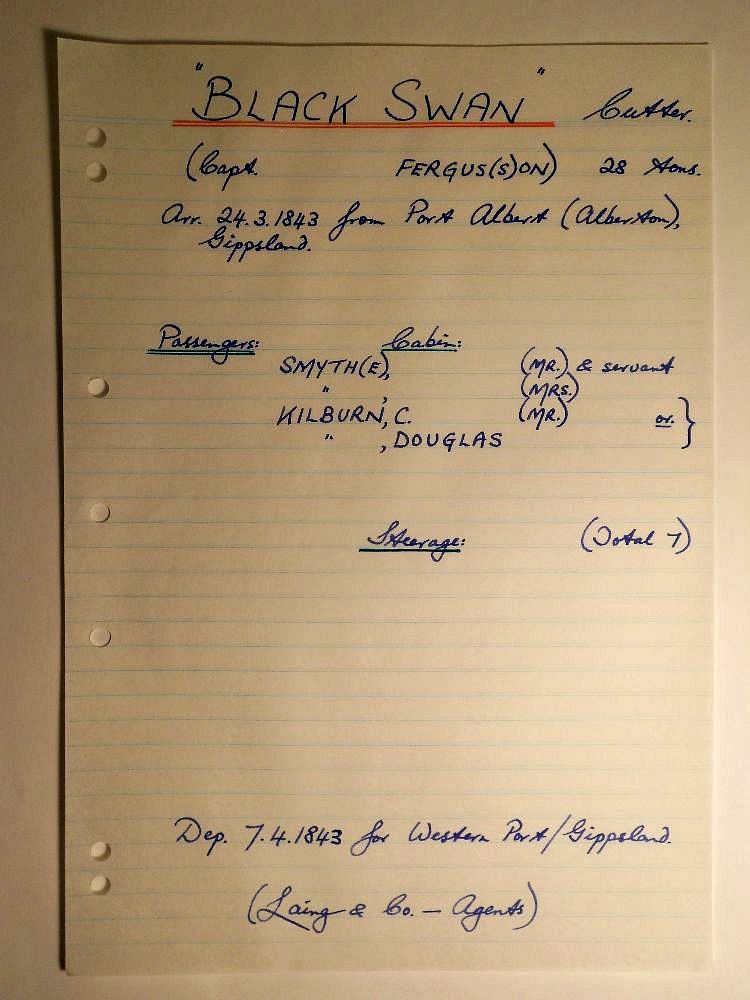 "BLACK SWAN" Cutter.
(Capt. FERGUS(S)ON) 28 tons.
Arr. 24.3.1843 from Port Albert (Alberton),
Gippsland.
Passengers: Cabin:
SMYTH(E), (MR.) & servant
" , (MRS.)
KILBURN, C. (MR.) or. }
" , DOUGLAS
Steerage: (Total 7)
Dep. 7.4.1843 for Western Port/Gippsland.
(Laing & Co. — Agents)